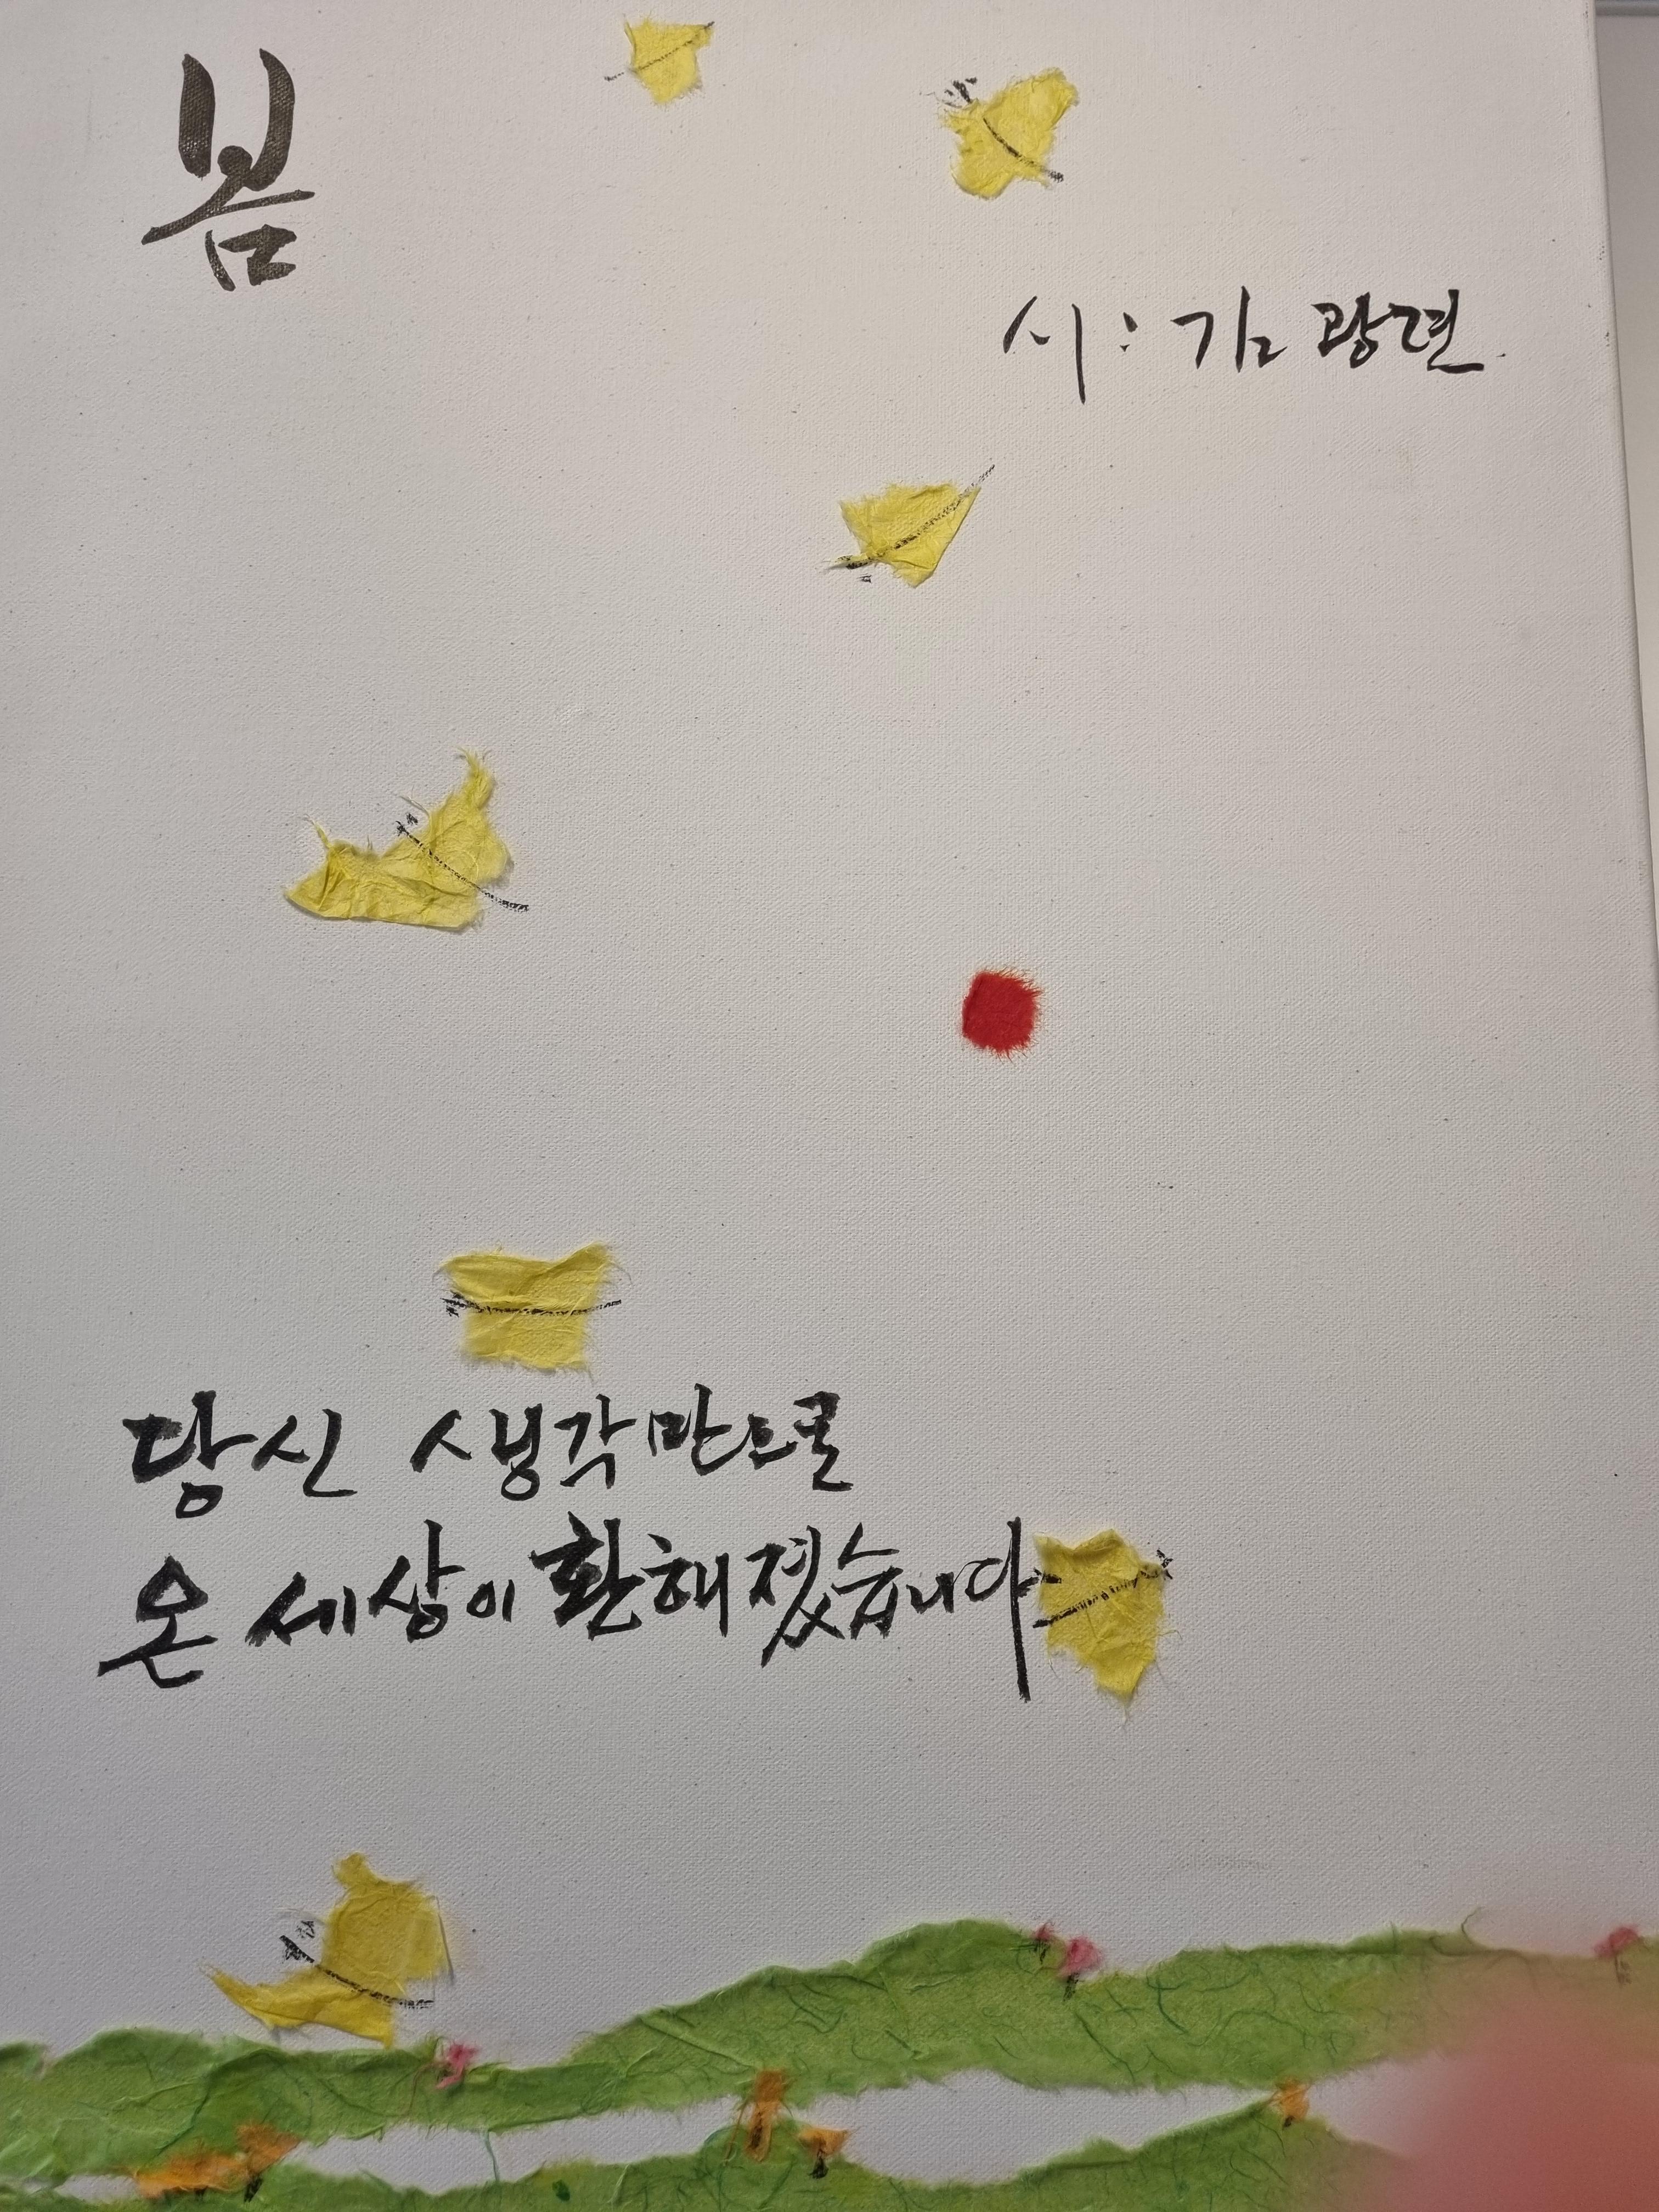 봄
시: 김광련
당신 생각만으로
온 세상이 환해졌습니다